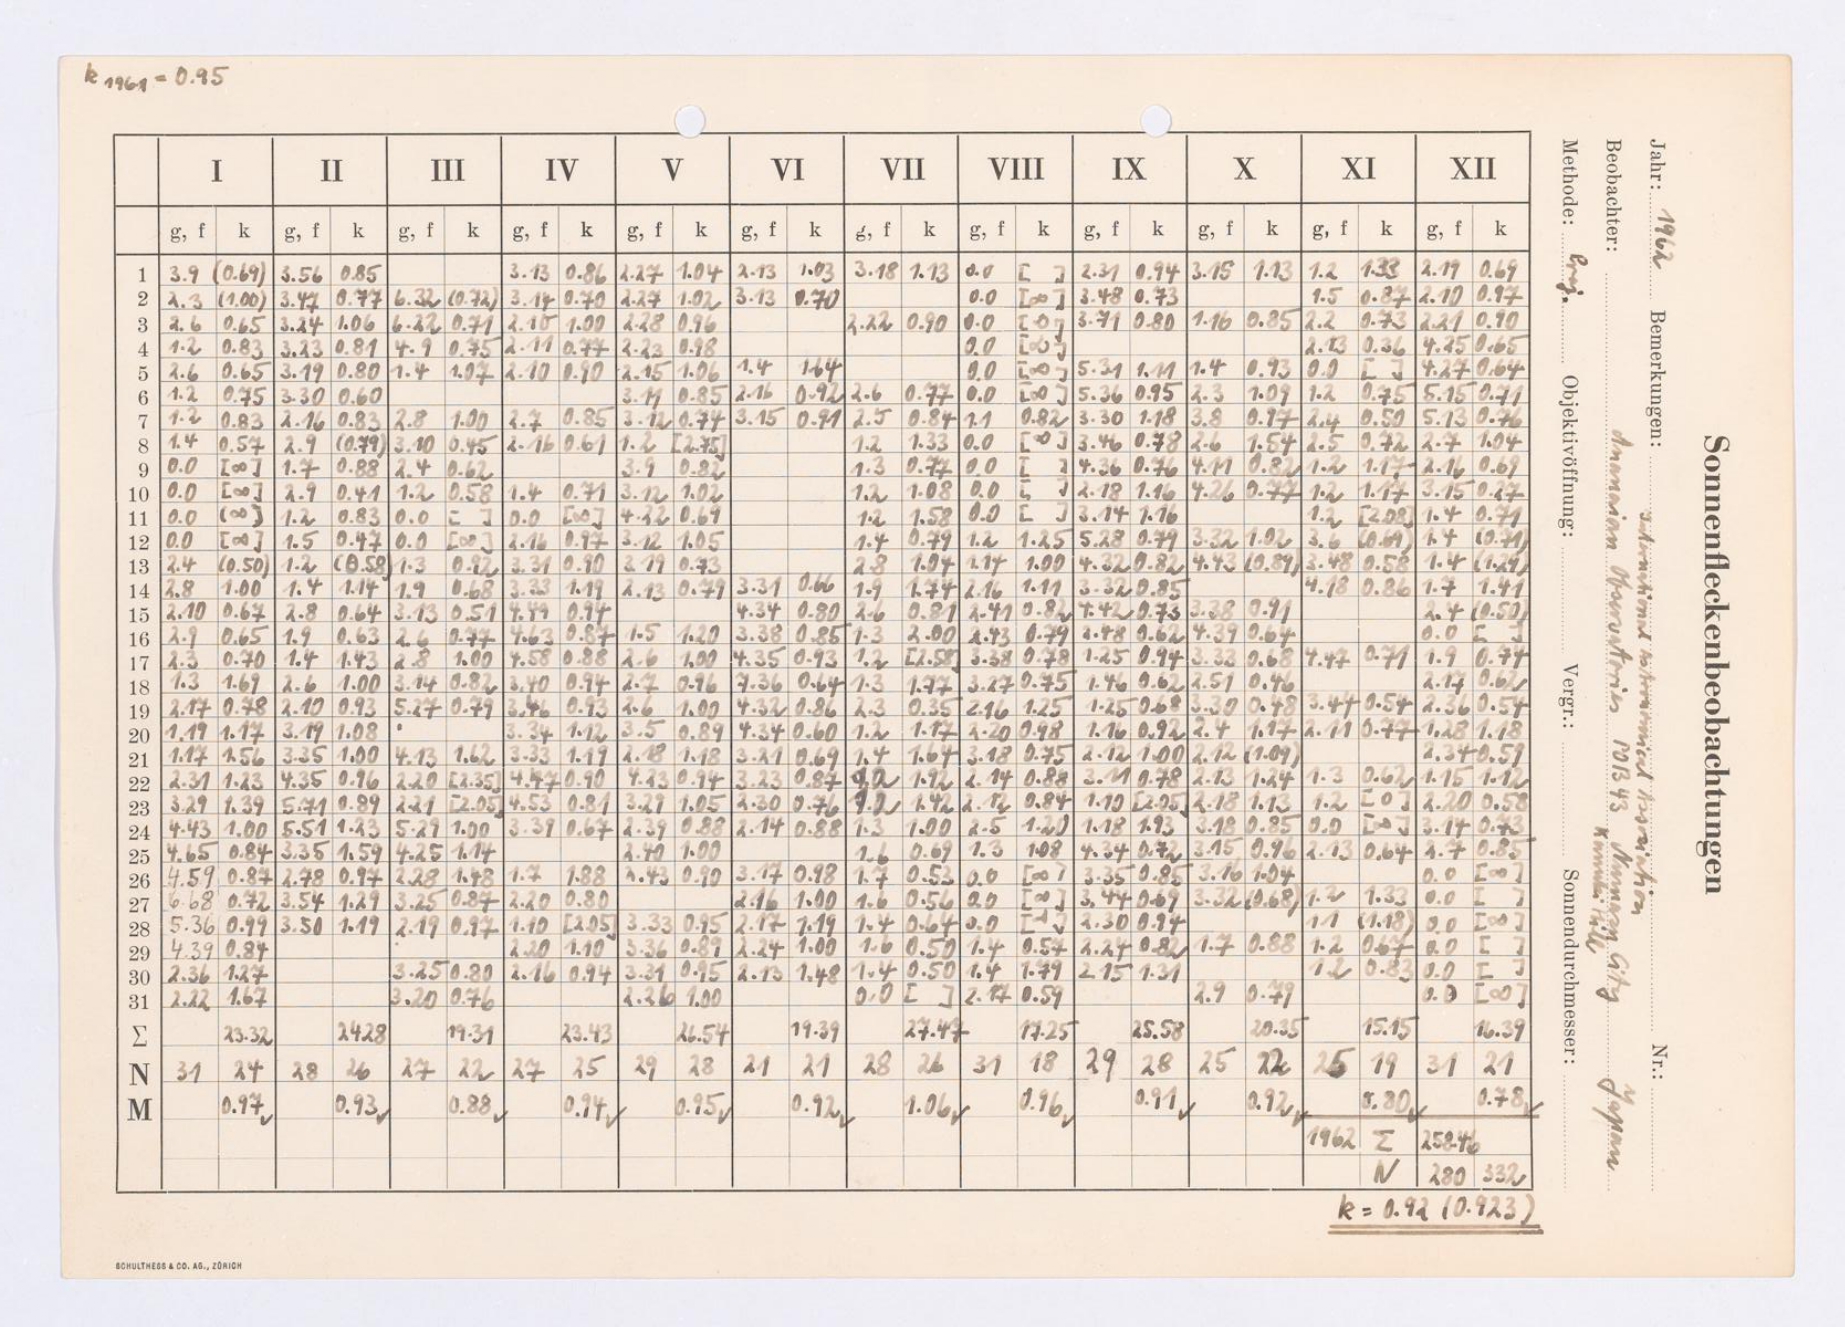 k 1961 = 0.95
I II III IV V VI VII VIII IX X XI XII
g, f k g, f k g, f k g, f k g, f k g, f k g, f k g, f k g, f k g, f k g, f k g, f k
1 3.9 (0.69) 3.56 0.85 3.13 0.86 2.27 1.04 2.13 1.03 3.18 1.13 0.0 [ ] 2.31 0.94 3.15 1.13 1.2 1.33 2.19 0.69
2 2.3 (1.00) 3.47 0.77 6.32 (0.72) 3.14 0.70 2.27 1.02 3.13 0.70 0.0 [∞] 3.48 0.73 1.5 0.87 2.10 0.97
3 2.6 0.65 3.24 1.06 6.22 0.71 2.10 1.00 2.28 0.96 2.22 0.90 0.0 [∞] 3.71 0.80 1.16 0.85 2.2 0.73 2.21 0.90
4 1.2 0.83 3.23 0.81 4.9 0.75 2.11 0.77 2.23 0.98 0.0 [∞] 2.13 0.36 4.25 0.65
5 2.6 0.65 3.19 0.80 1.4 1.07 2.10 0.90 2.15 1.06 1.4 1.64 0.0 [∞] 5.31 1.11 1.4 0.93 0.0 [ ] 4.27 0.64
6 1.2 0.75 3.30 0.60 3.11 0.85 2.16 0.92 2.6 0.77 0.0 [∞] 5.36 0.95 2.3 1.09 1.2 0.75 5.15 0.71
7 1.2 0.83 2.16 0.83 2.8 1.00 2.7 0.85 3.12 0.74 3.15 0.91 2.5 0.84 1.1 0.82 3.30 1.18 3.8 0.97 2.4 0.50 5.13 0.76
8 1.4 0.57 2.9 (0.79) 3.10 0.45 2.16 0.61 1.2 [2.75] 1.2 1.33 0.0 [∞] 3.46 0.78 2.6 1.54 2.5 0.72 2.7 1.04
9 0.0 [∞] 1.7 0.88 2.4 0.62 3.9 0.82 1.3 0.77 0.0 [ ] 4.36 0.76 4.11 0.82 1.2 1.17 2.16 0.69
10 0.0 [∞] 2.9 0.41 1.2 0.58 1.4 0.71 3.12 1.02 1.2 1.08 0.0 [ ] 2.18 1.16 4.26 0.77 1.2 1.17 3.15 0.27
11 0.0 (∞] 1.2 0.83 0.0 [ ] 0.0 [∞] 4.22 0.69 1.2 1.58 0.0 [ ] 3.14 1.16 1.2 [2.08] 1.4 0.71
12 0.0 [∞] 1.5 0.47 0.0 [∞] 2.16 0.97 3.12 1.05 1.4 0.79 1.2 1.25 5.28 0.79 3.32 1.02 3.6 (0.69) 1.4 (0.71)
13 2.4 (0.50) 1.2 (0.58) 1.3 0.92 3.31 0.90 3.19 0.73 2.8 1.04 1.14 1.00 4.32 0.82 4.43 (0.89) 3.48 0.58 1.4 (1.29)
14 2.8 1.00 1.4 1.14 1.9 0.68 3.33 1.19 2.13 0.79 3.31 0.66 1.9 1.74 2.16 1.11 3.32 0.85 4.18 0.86 1.7 1.41
15 2.10 0.67 2.8 0.64 3.13 0.51 4.49 0.94 4.34 0.80 2.6 0.81 2.41 0.82 4.42 0.73 3.38 0.91 2.4 (0.50)
16 2.9 0.65 1.9 0.63 2.6 0.77 4.63 0.87 1.5 1.20 3.38 0.85 1.3 2.00 2.43 0.79 2.48 0.62 4.39 0.64 0.0 [ ]
17 2.3 0.70 1.4 1.43 2.8 1.00 4.58 0.88 2.6 1.00 4.35 0.93 1.2 [2.58] 3.38 0.78 1.25 0.94 3.33 0.68 4.47 0.71 1.9 0.74
18 1.3 1.69 2.6 1.00 3.14 0.82 3.40 0.94 2.7 0.96 7.36 0.64 1.3 1.77 3.27 0.75 1.46 0.62 2.51 0.46 2.17 0.62
19 2.17 0.78 2.10 0.93 5.27 0.79 3.46 0.93 2.6 1.00 4.32 0.86 2.3 0.35 2.16 1.25 1.25 0.68 3.30 0.48 3.44 0.54 2.36 0.54
20 1.19 1.17 3.19 1.08 3.34 1.12 3.5 0.89 4.34 0.60 1.2 1.17 2.20 0.98 1.16 0.92 2.4 1.17 2.11 0.77 1.28 1.18
21 1.17 1.56 3.35 1.00 4.13 1.62 3.33 1.19 2.18 1.18 3.21 0.69 1.4 1.64 3.18 0.75 2.12 1.00 2.12 (1.09) 2.34 0.59
22 2.31 1.23 4.35 0.96 2.20 [2.35] 4.47 0.90 4.23 0.94 3.23 0.87 1.92 2.14 0.88 3.11 0.78 2.13 1.24 1.3 0.62 1.15 1.12
23 3.29 1.39 5.71 0.89 2.21 [2.05] 4.53 0.81 3.27 1.05 2.30 0.76 1.42 2.12 0.84 1.10 [2.05] 2.18 1.13 1.2 [0] 2.20 0.58
24 4.43 1.00 5.51 1.23 5.29 1.00 3.39 0.67 2.39 0.88 2.14 0.88 1.3 1.00 2.5 1.20 1.18 1.93 3.18 0.85 0.0 [∞] 3.14 0.73
25 4.65 0.84 3.35 1.59 4.25 1.14 2.40 1.00 1.6 0.69 1.3 1.08 4.34 0.72 3.15 0.96 2.13 0.64 2.7 0.85
26 4.59 0.87 2.78 0.97 2.28 1.48 1.7 1.88 4.43 0.90 3.17 0.98 1.7 0.53 0.0 [∞] 3.35 0.85 3.16 1.04 0.0 [∞]
27 6.68 0.72 3.54 1.29 3.25 0.87 2.20 0.80 2.16 1.00 1.6 0.56 0.0 [∞] 3.44 0.69 3.32 (0.68) 1.2 1.33 0.0 [ ]
28 5.36 0.99 3.50 1.19 2.19 0.97 1.10 [2.05] 3.33 0.95 2.17 1.19 1.4 0.64 0.0 2.30 0.94 1.1 (1.18) 0.0 [∞]
29 4.39 0.84 2.20 1.10 3.36 0.89 2.24 1.00 1.6 0.50 1.4 0.57 2.24 0.82 1.7 0.88 1.2 0.67 0.0 [ ]
30 2.36 1.27 3.25 0.80 2.16 0.94 3.31 0.95 2.13 1.48 1.4 0.50 1.4 1.79 2.15 1.31 1.2 0.83 0.0 [ ]
31 2.22 1.67 3.20 0.76 2.26 1.00 0.0 [ ] 2.17 0.59 2.9 0.79 0.0 [∞]
Σ 23.32 24.28 19.31 23.43 26.54 19.39 27.47 17.25 25.58 20.35 15.15 16.39
N 31 24 28 26 27 22 27 25 29 28 21 21 28 26 31 18 29 28 25 22 25 19 31 21
M 0.97 0.93 0.88 0.94 0.95 0.92 1.06 0.96 0.91 0.92 0.80 0.78
1962 Σ 258.46
N 280 332
k = 0.92 (0.923)
SCHULTHESS & CO. AG., ZÜRICH
Sonnenfleckenbeobachtungen
Jahr: 1962 Bemerkungen: Nr.:
Beobachter: American Observatories POB 43 Numazu City Japan
Methode: Proj. Objektivöffnung: Vergr.: Sonnendurchmesser: